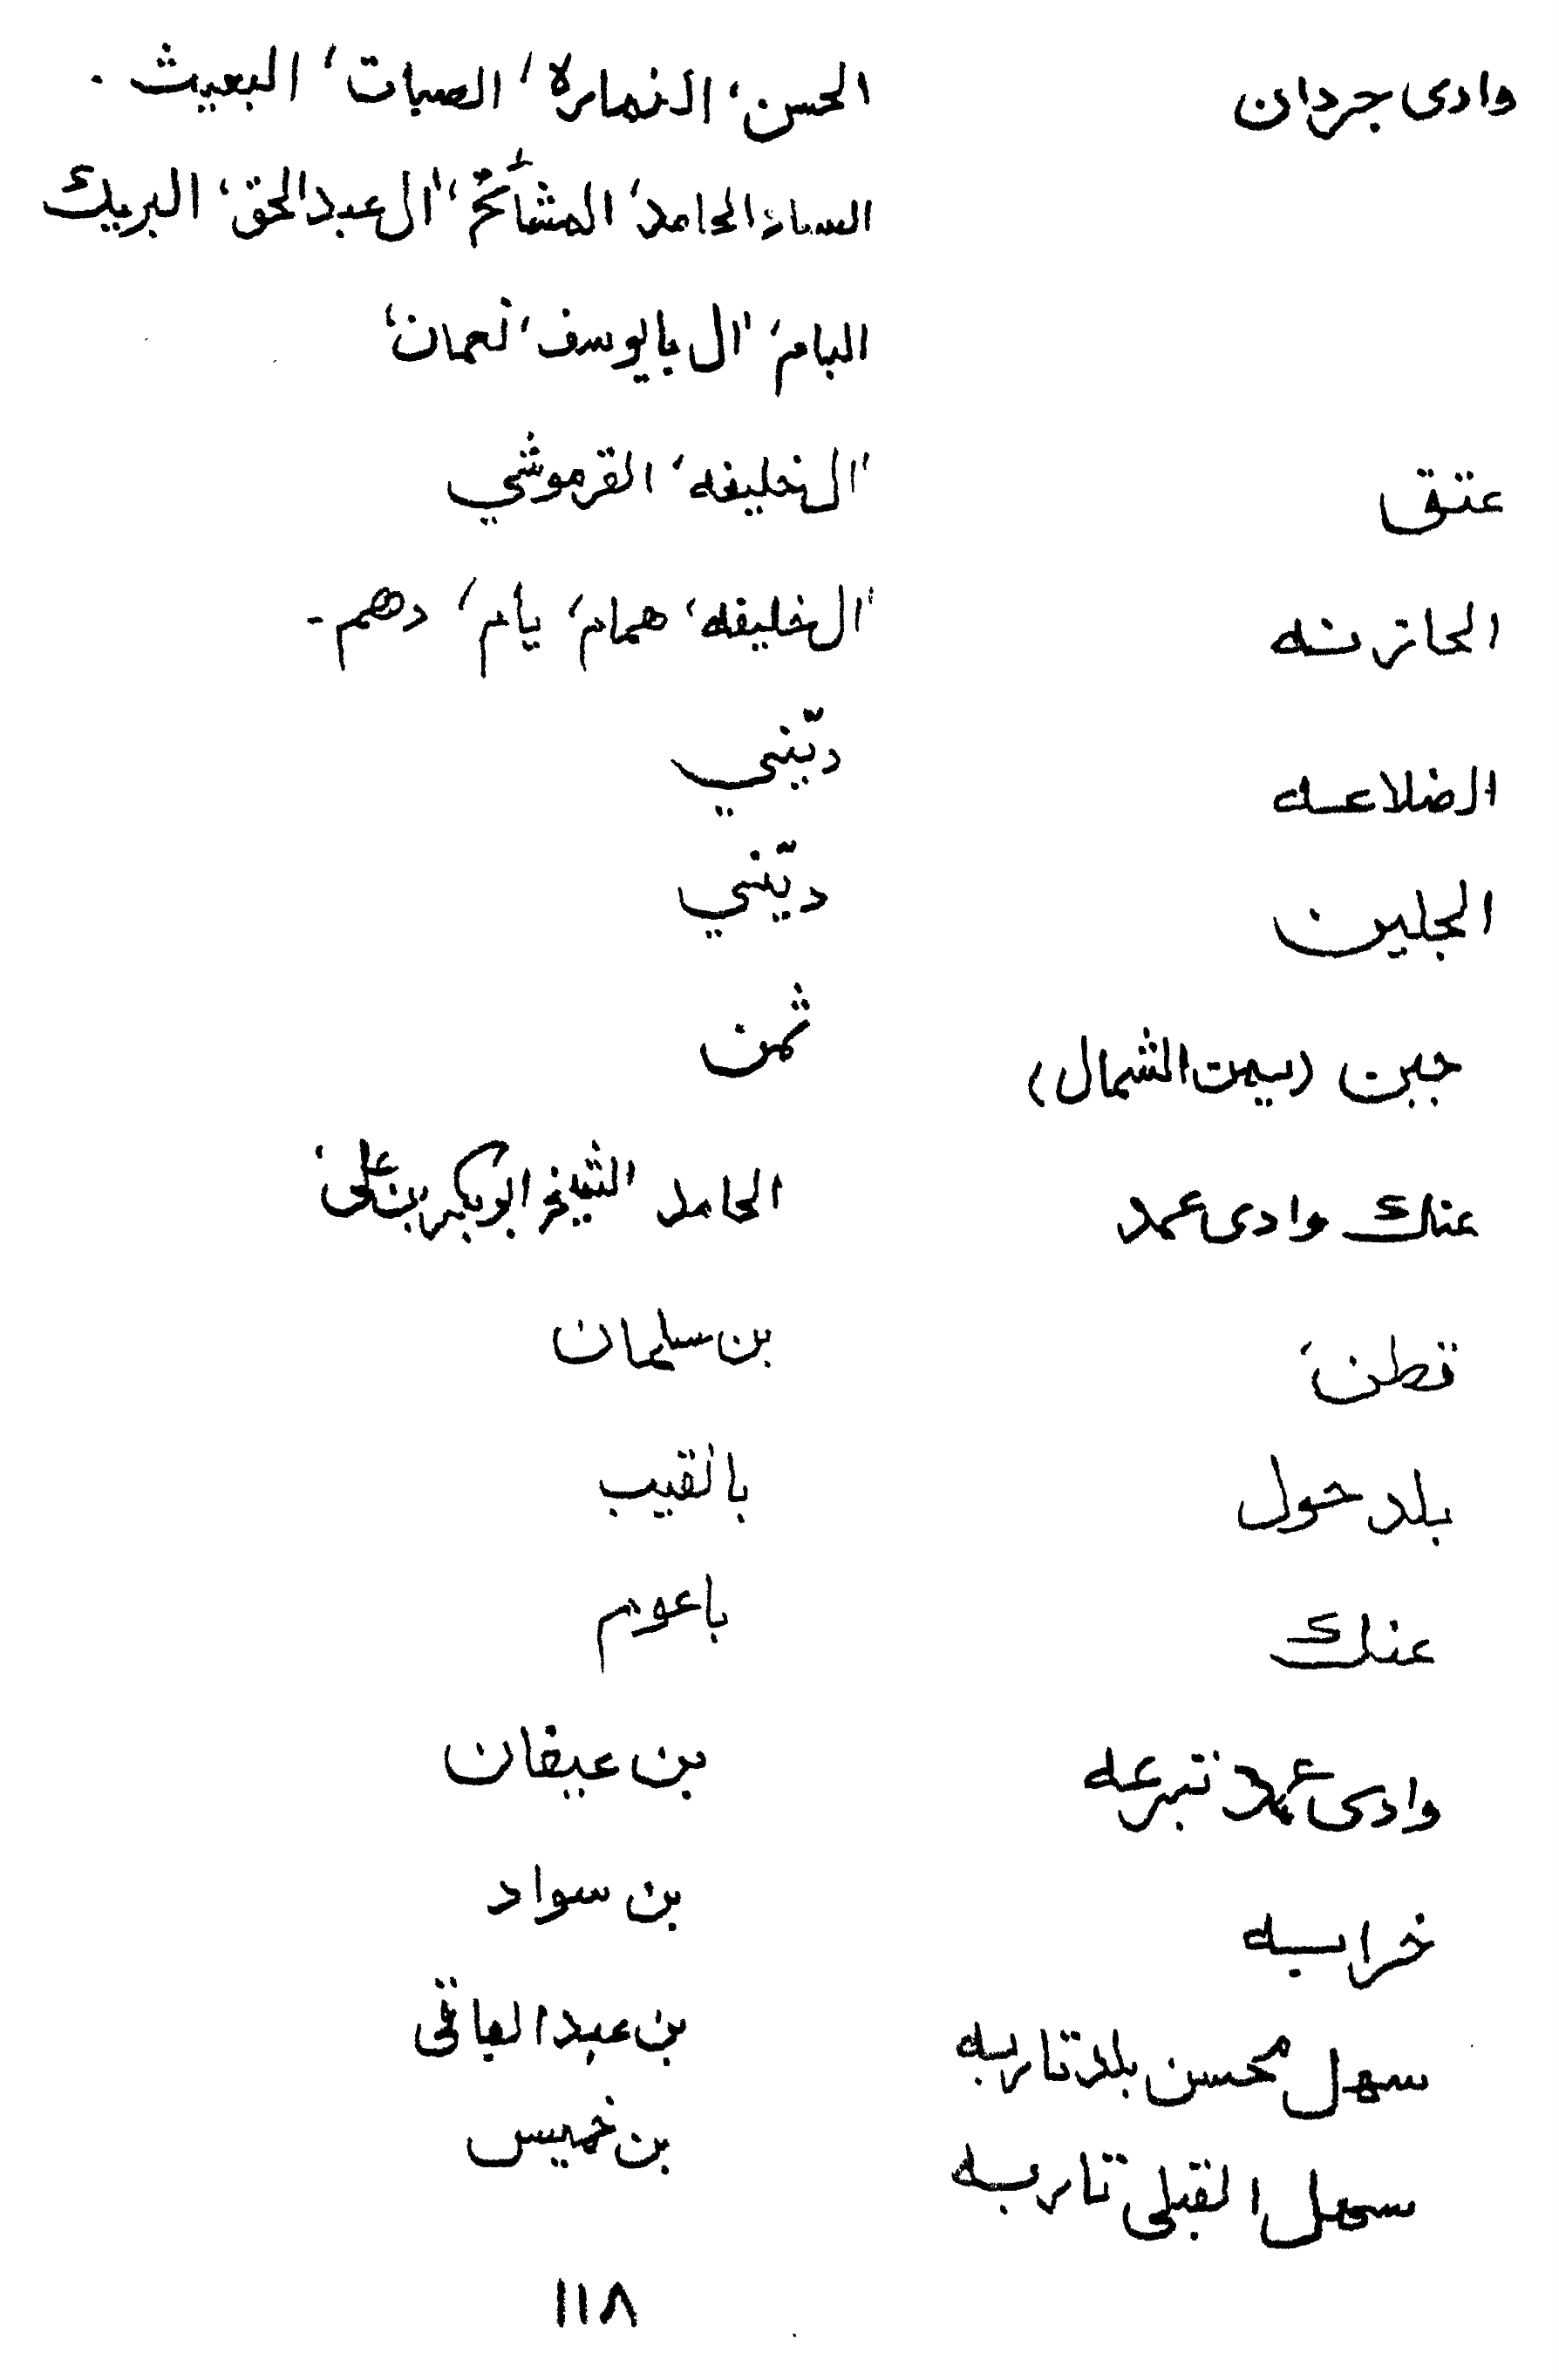 وادى جردان الحسن، النماره، الصبات، البعيث.
الحامد، المشائخ، ال عبدالحق، البريك
البام، ال بايوسف، نعمان،
عتق ال خليفه، القرموشي
الحازنه ال خليفه، همام، يام، دهم-
الضلاعه ديّني
الجلين ديّني
جبن (بيت الشمال) ثمن
عنك وادى عمد الحامد الشيخ ابوبكر بن على،
قطن، بن سليمان
بلد حول بالنقيب
عنك باعوم
وادى عمد تبرعه بن عيفان
خرابه بن سواد
سهل محسن بلد تاربه بن عبدالباقى
سهل القبلى تاربه بن خميس
١١٨